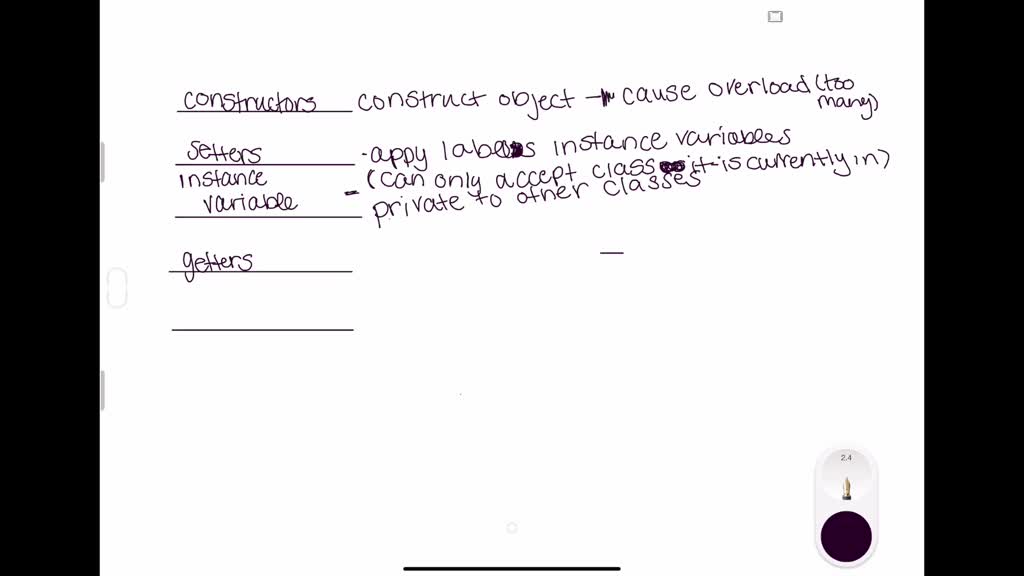 constructors construct object → cause overload (too many)
setters - appy labels instance variables
instance variable (can only accept class it is currently in)
- private to other classes
getters
2.4